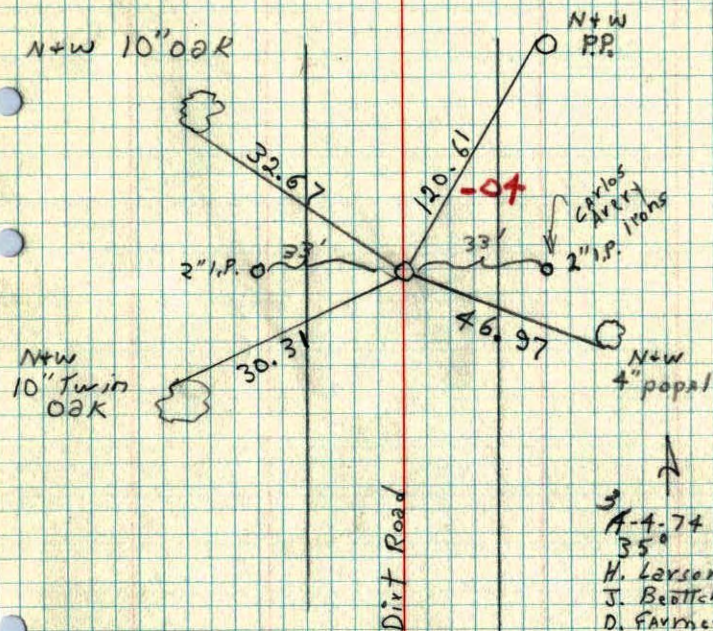 N+W 10" oak
N+W
P.P.
32.67
120.61
-04
Carlos
Avery
Irons
33'
33'
2" I.P.
2" I.P.
46.97
30.31
N+W
10" Twin
oak
N+W
4" popel
Dirt Road
3
4-4-74
35°
H. Larson
J.
D. Farmer